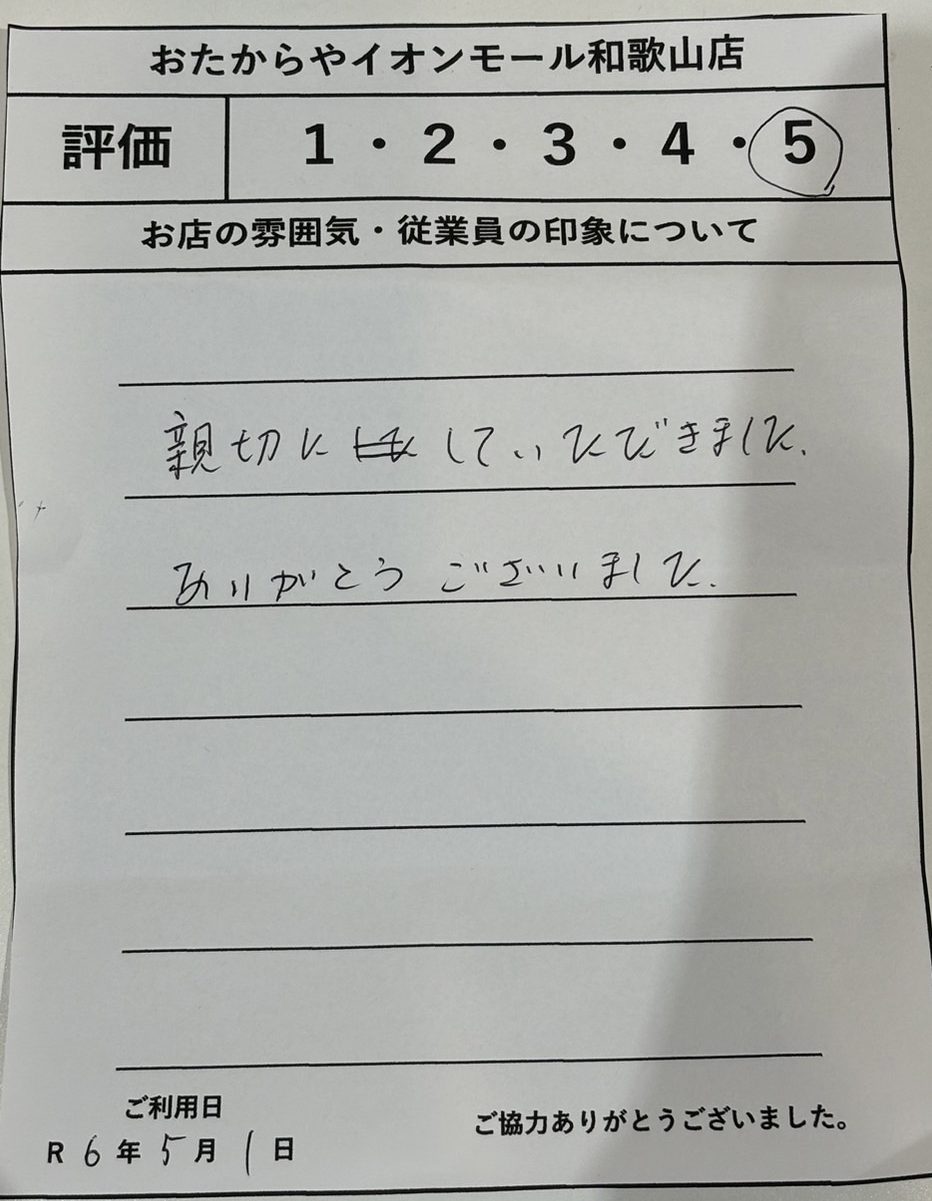 おたからやイオンモール和歌山店
評価 1・2・3・4・5
お店の雰囲気・従業員の印象について
親切に していただきました.
ありがとう ございました.
ご利用日
R 6 年 5 月 1 日
ご協力ありがとうございました。